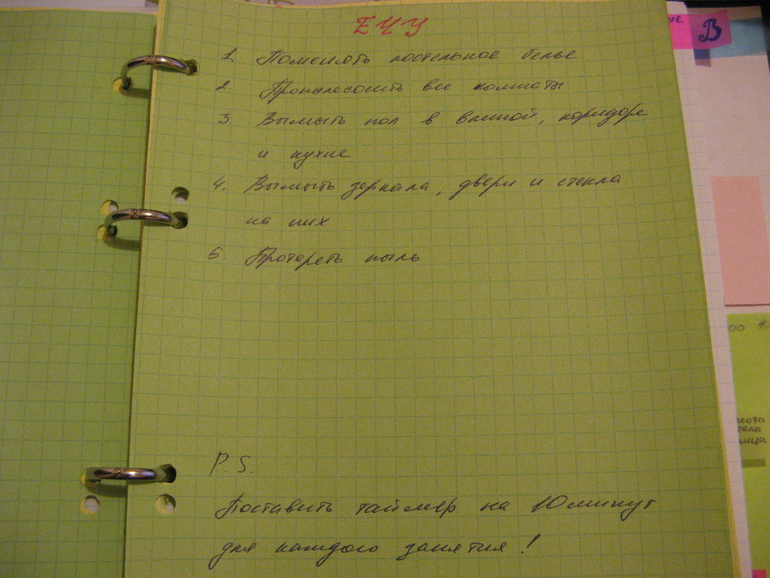 ЕЧУ
1. Поменять постельное белье
2. Пропылесосить все комнаты
3. Вымыть пол в ванной, коридоре
и кухне
4. Вымыть зеркала, двери и стекла
на них
5. Протереть пыль
P.S.
Поставить таймер на 10 минут
для каждого занятия!
В